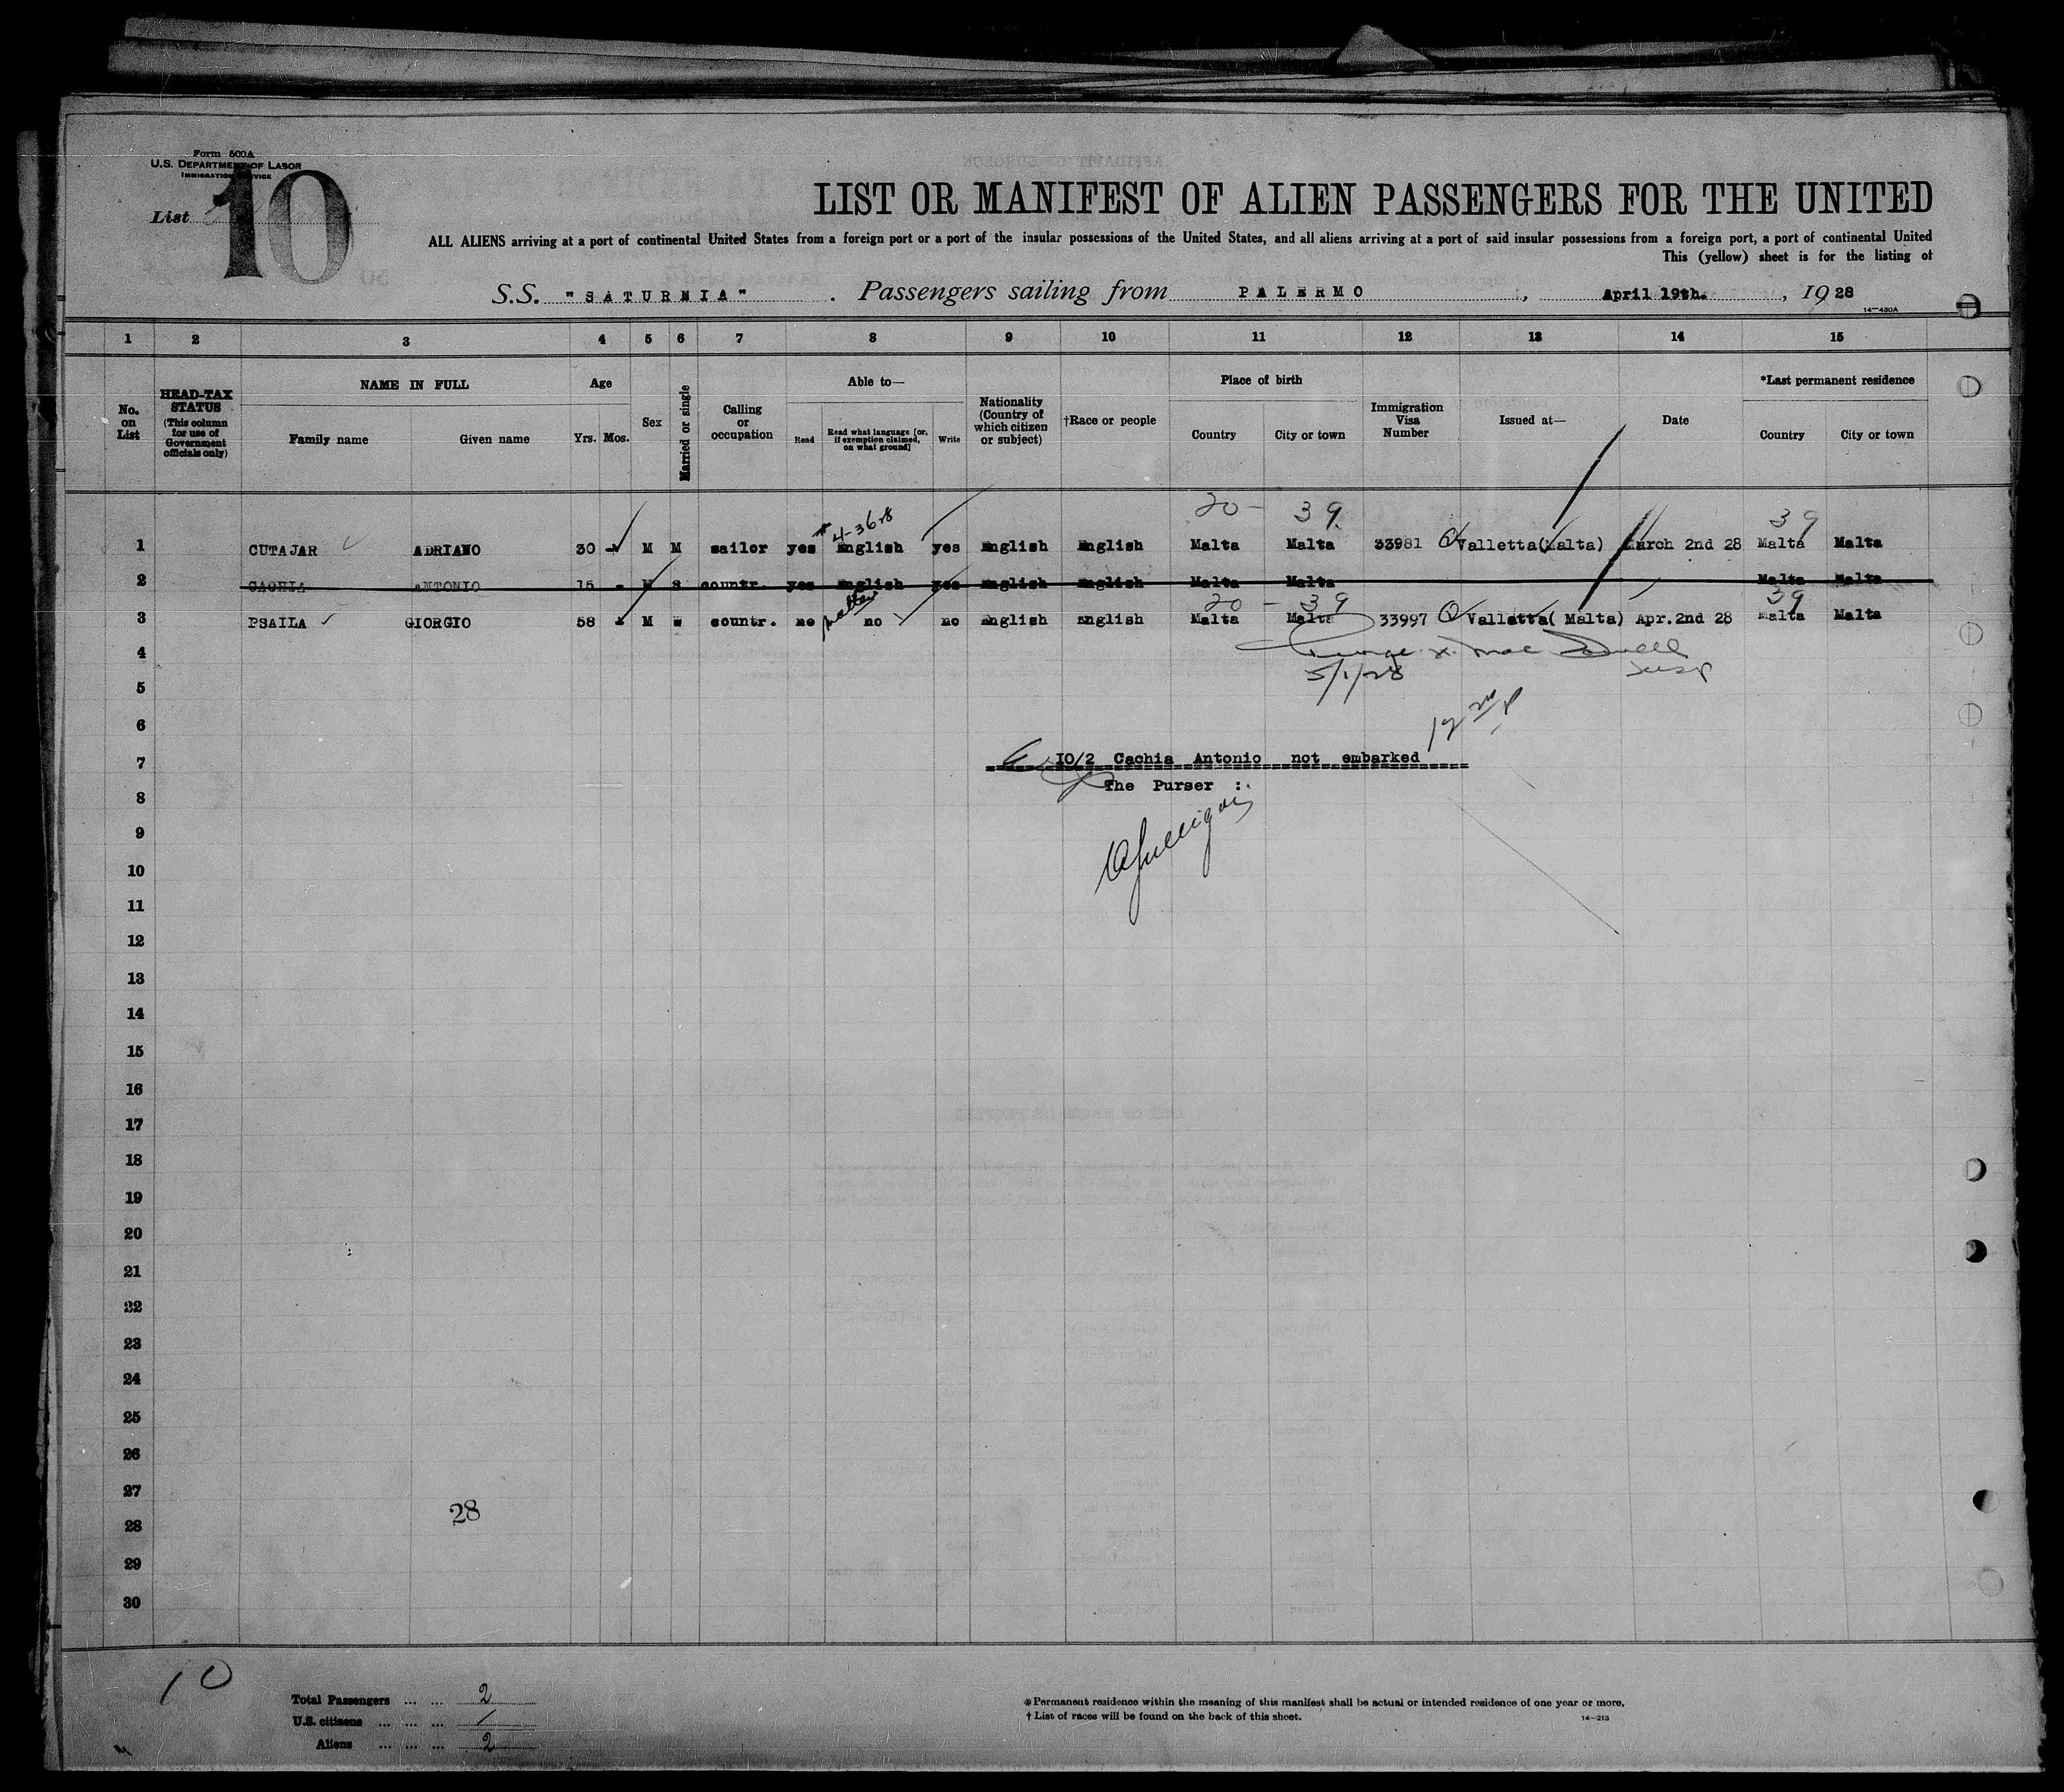 Form 500A
U.S. DEPARTMENT OF LABOR
IMMIGRATION SERVICE
List 10
LIST OR MANIFEST OF ALIEN PASSENGERS FOR THE UNITED
ALL ALIENS arriving at a port of continental United States from a foreign port or a port of the insular possessions of the United States, and all aliens arriving at a port of said insular possessions from a foreign port, a port of continental United
This (yellow) sheet is for the listing of
S.S. "SATURNIA" . Passengers sailing from PALERMO , April 19th. , 1928
14—430A
1 2 3 4 5 6 7 8 9 10 11 12 13 14 15
No. on List
HEAD-TAX STATUS (This column for use of Government officials only)
NAME IN FULL
Family name Given name
Age
Yrs. Mos.
Sex
Married or single
Calling or occupation
Able to—
Read
Read what language [or, if exemption claimed, on what ground]
Write
Nationality (Country of which citizen or subject)
†Race or people
Place of birth
Country City or town
Immigration Visa Number
Issued at—
Date
*Last permanent residence
Country City or town
4-3628 20 - 39. 39
1 CUTAJAR ADRIANO 30 - M M sailor yes English yes English English Malta Malta 33981 Valletta(Malta) March 2nd 28 Malta Malta
2 CACHIA ANTONIO 15 - M S countr. yes English yes English English Malta Malta Malta Malta
20 - 39 39
3 PSAILA GIORGIO 58 - M w countr. no no no English English Malta Malta 33997 Valletta( Malta) Apr.2nd 28 Malta Malta
4
5/1/28
5
6
7 IO/2 Cachia Antonio not embarked
8 The Purser :
9
10
11
12
13
14
15
16
17
18
19
20
21
22
23
24
25
26
27
28
28
29
30
10
Total Passengers ... ... 2
U.S. citizens ... ... ... /
Aliens ... ... ... 2
*Permanent residence within the meaning of this manifest shall be actual or intended residence of one year or more.
† List of races will be found on the back of this sheet.
14—213